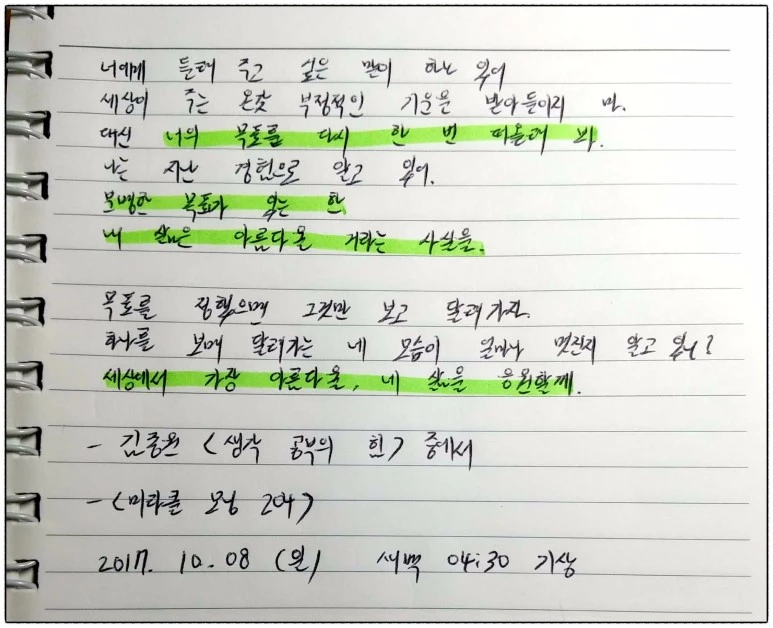 너에게 들려 주고 싶은 말이 하나 있어
세상이 주는 온갖 부정적인 기운을 받아들이지 마.
대신 너의 목표를 다시 한 번 떠올려 봐.
나는 지난 경험으로 알고 있어.
분명한 목표가 있는 한
내 삶은 아름다울 거라는 사실을.
목표를 정했으면 그것만 보고 달려가자.
하나를 보며 달려가는 네 모습이 얼마나 멋진지 알고 있니?
세상에서 가장 아름다울, 네 삶을 응원할께.
- 김종원 <생각 공부의 힘> 중에서
- <미라클 모닝 204>
2017. 10. 08 (일) 새벽 04:30 기상